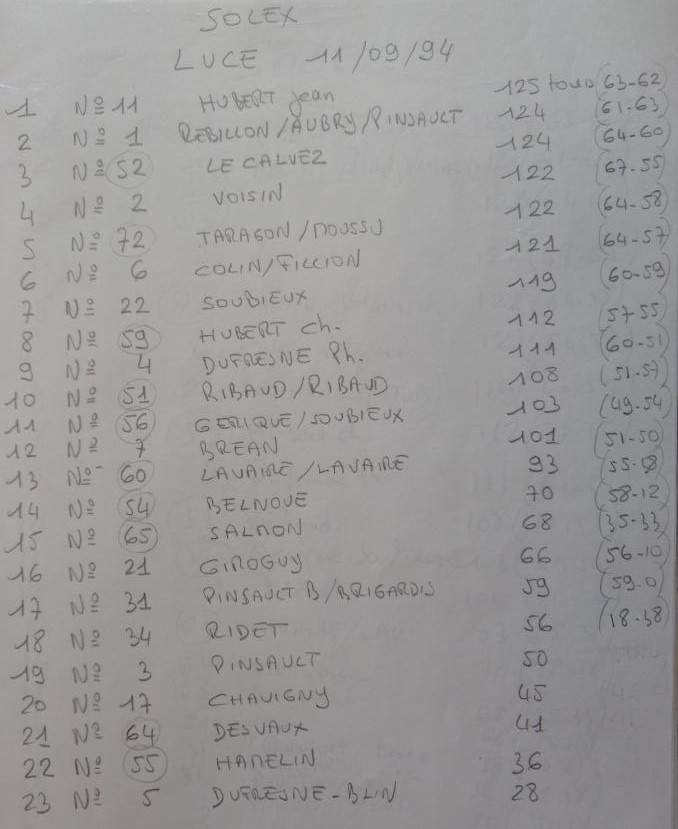 SOLEX
LUCE 11/09/94
1 Nº 11 HUBERT Jean 125 tours (63-62)
2 Nº 1 REBILLON/AUBRY/PINSAULT 124 (61-63)
3 Nº 52 LE CALVEZ 124 (64-60)
4 Nº 2 VOISIN 122 (67-55)
5 Nº 72 TARAGON/MOUSSU 122 (64-58)
6 Nº 6 COLIN/FILLION 121 (64-57)
7 Nº 22 SOUBIEUX 119 (60-59)
8 Nº 59 HUBERT Ch. 112 (57-55)
9 Nº 4 DUFRESNE Ph. 111 (60-51)
10 Nº 51 RIBAUD/RIBAUD 108 (51-57)
11 Nº 56 GERIQUE/SOUBIEUX 103 (49-54)
12 Nº 7 BREAN 101 (51-50)
13 Nº 60 LAVAIRE/LAVAIRE 93
14 Nº 54 BELNOUE 70 (58-12)
15 Nº 65 SALMON 68 (35-33)
16 Nº 21 GIROGUY 66 (56-10)
17 Nº 31 PINSAULT B/BRIGARDIS 59 (59-0)
18 Nº 34 RIDET 56 (18-38)
19 Nº 3 PINSAULT 50
20 Nº 17 CHAVIGNY 45
21 Nº 64 DESVAUX 41
22 Nº 55 HAMELIN 36
23 Nº 5 DUFRESNE-BLIN 28